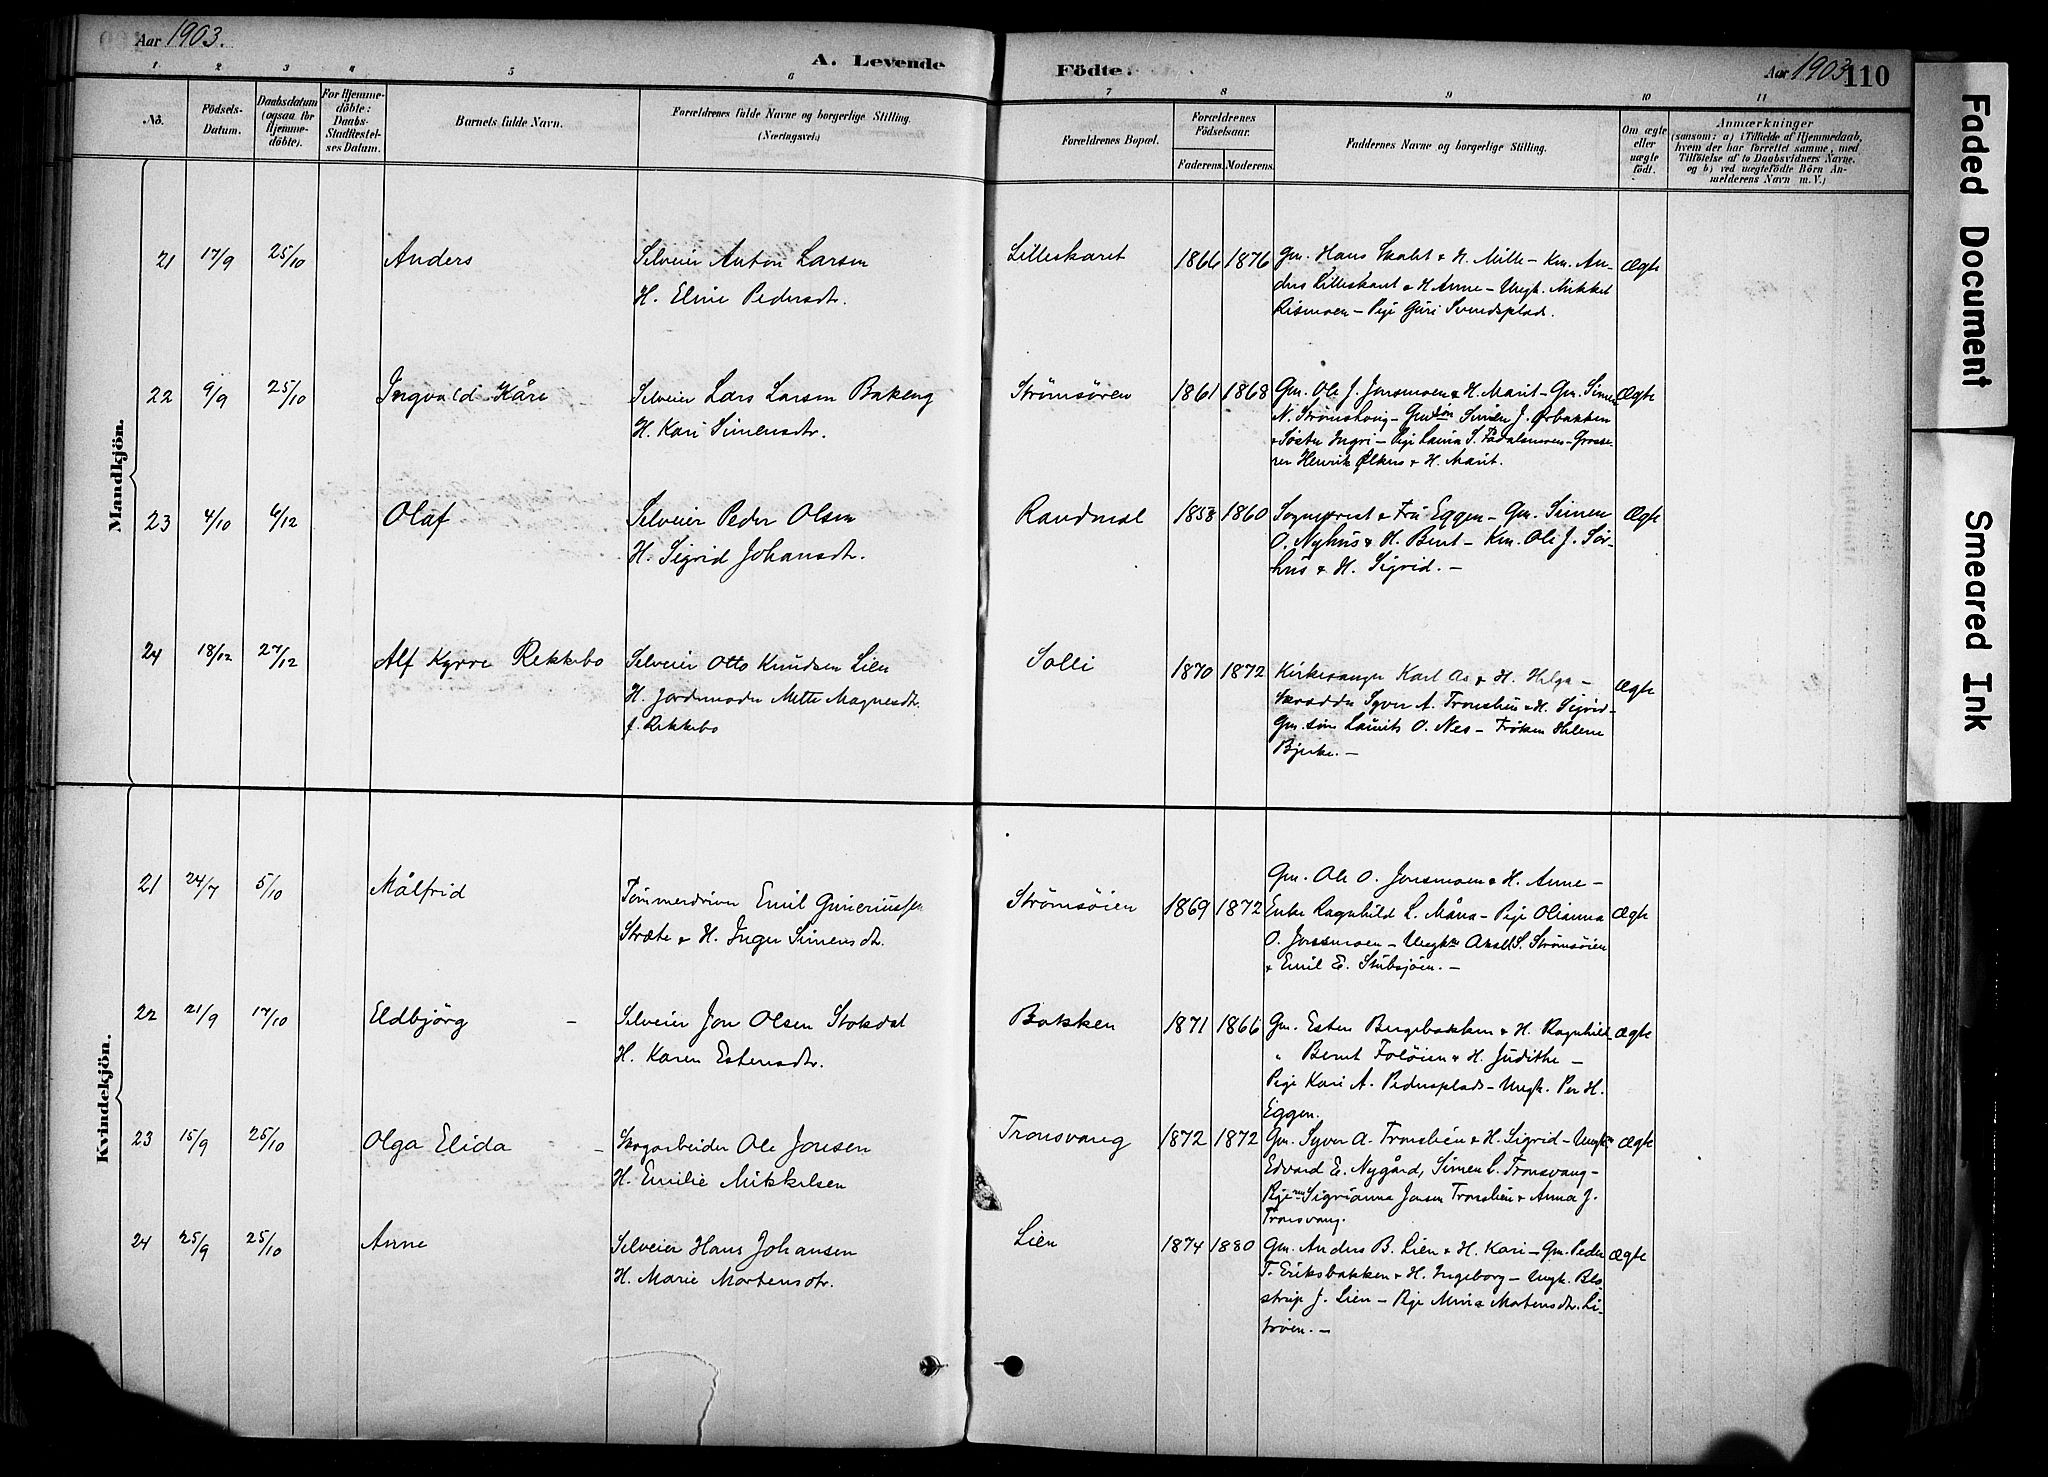 Aar 1903.
A. Levende
Födte.
Aar 1903
110
1 2 3 4 5 6 7 8 9 10 11
No.
Födsels-
Datum.
Daabsdatum
(ogsaa for
Hjemme-
döbte).
For Hjemme-
döbte:
Daabs-
Stadfæstel-
ses Datum.
Barnets fulde Navn.
Forældrenes fulde Navne og borgerlige Stilling.
(Næringsvei.)
Forældrenes Bopæl.
Forældrenes
Födselsaar.
Faderens. Moderens.
Faddernes Navne og borgerlige Stilling.
Om ægte
eller
uægte
födt.
Anmærkninger
(saasom: a) i Tilfælde af Hjemmedaab,
hvem der har forrettet samme, med
Tilföielse af to Daabsvidners Navne,
og b) ved uægtefödte Börn An-
melderens Navn m. V.)
Mandkjön.
21 17/9 25/10 Anders
Selveier Anton Larsen
H. Eline Pedersdr.
Lilleskaret 1866 1876
Gm. Hans Skalet & H. Mille - Km. An-
ders Lilleskaret & H Anne - Ungk. Mikkel
Rismoen - Pige Guri Svendsplads.
Ægte
22 9/9 25/10 Ingvald Kåre
Selveier Lars Larsen Bakeng
H. Kari Simensdtr.
Strømsøren 1861 1868
Gm. Ole J. Jonsmoen & H. Marit - Gm. Simen
N. Strømshaug - Gmsøn Simen J. Ørbakken
& Søster Ingri - Pige Laura S. Fådalsmoen - Grosse-
rer Henrik Ølkers & H. Marit.
Ægte
23 4/10 6/12 Olaf
Selveier Peder Olsen
H. Sigrid Johansdtr.
Randmæl 1858 1860
Sogneprest & Fru Eggen - Gm. Simen
O. Nyhus & H. Berit - Km. Ole J. Sør-
hus & H. Sigrid. -
Ægte
24 18/12 27/12 Alf Kyrre Rekkebo
Selveier Otto Knudsen Lien
H. Jordemoder Mette Magnesdtr.
f. Rekkebo
Solli 1870 1872
Kirkesanger Karl As & H. Helga -
Skrædder Syver A. Tronslien & H. Sigrid -
Gm. søn Laurits O. Nes - Frøken Helene
Bjerke. -
Ægte
Kvindekjön.
21 24/7 5/10 Målfrid
Tømmerdriver Emil Guneriussen
Stræte & H. Inger Simensdtr.
Strømsøien 1869 1872
Gm. Ole O. Jonsmoen & H. Anne -
Enke Ragnhild L. Måna - Pige Olianna
O. Jonsmoen - Ungkm Aksel S. Strømsøien
& Emil E. Stubsjøen. -
Ægte
22 21/9 17/10 Eldbjörg -
Selveier Jon Olsen Stokdal
H. Karen Estensdtr.
Bakken 1871 1866
Gm. Esten Bergebakken & H. Ragnhild
" Bernt Foløien & H. Judithe -
Pige Kari A. Pedersplads - Ungk. Per H.
Eggen.
Ægte
23 15/9 25/10 Olga Elida -
Skogarbeider Ole Jonsen
H. Emilie Mikkelsen
Tronsvang 1872 1872
Gm. Syver A. Tronslien & H. Sigrid - Ungkm
Edvard E. Nygård, Simen L. Tronsvang -
Pigerne Sigrianna Jonsen Tronslien & Anna J.
Tronsvang.
Ægte
24 25/9 25/10 Anne
Selveier Hans Johansen
H. Marie Mortensdtr.
Lien 1874 1880
Gm. Anders B. Lien & H. Kari - Gm. Peder
T. Eriksbakken & H. Ingeborg - Ungk. Bls
strup J. Lien - Pige Mina Mortensdtr. Li-
trøen. -
Ægte
Faded Document
Smeared Ink